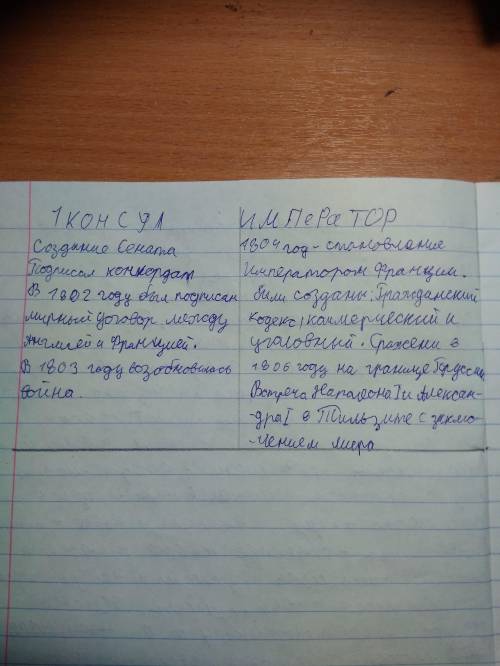 1 КОНСУЛ
Создание Сената
Подписал конкордат
В 1802 году был подписан
мирный договор между
Англией и Францией.
В 1803 году возобновилась
война.
ИМПЕРаТОР
1804 год - становление
императором Франции.
Были созданы: Гражданский
кодекс, коммерческий и
уголовный. Сражени в
1806 году на границе Пруссии
Встреча Напалеона I и Алексан-
-дра I в Тильзите с заклю-
-чением мира